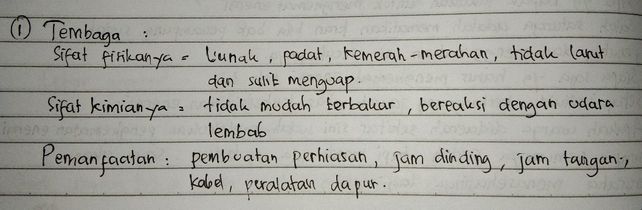 ① Tembaga :
Sifat fisikanya = Lunak, padat, kemerah-merahan, tidak larut
dan sulit menguap.
Sifat kimianya = tidak mudah terbakar, bereaksi dengan udara
lembab
Pemanfaatan : pembuatan perhiasan, jam dinding, jam tangan,
kabel, peralatan dapur.